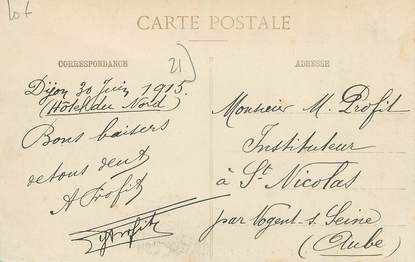 Lot
CARTE POSTALE
CORRESPONDANCE
ADRESSE
21
Dijon 30 Juin 1915.
(Hôtel du Nord)
Bons baisers
de tous deux
A Profit
Monsieur M. Profit
Instituteur
à St Nicolas
par Nogent-s. Seine
(Aube)